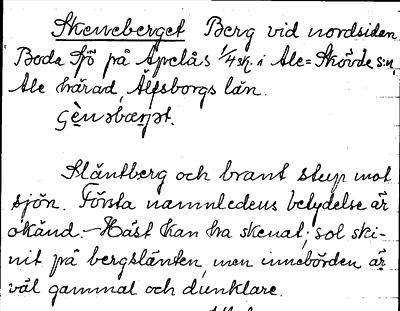 Skeneberget Berg vid nordsidan
Boda Sjö på Apelås 1/4 sk. i Ale=Skövde sn,
Ale härad, Älfsborgs län.
Släntberg och brant stup mot
sjön. Första namnledens betydelse är
okänd.- Häst kan ha skenat; sol ski-
nit på bergslänten, men innebörden är
väl gammal och dunklare.